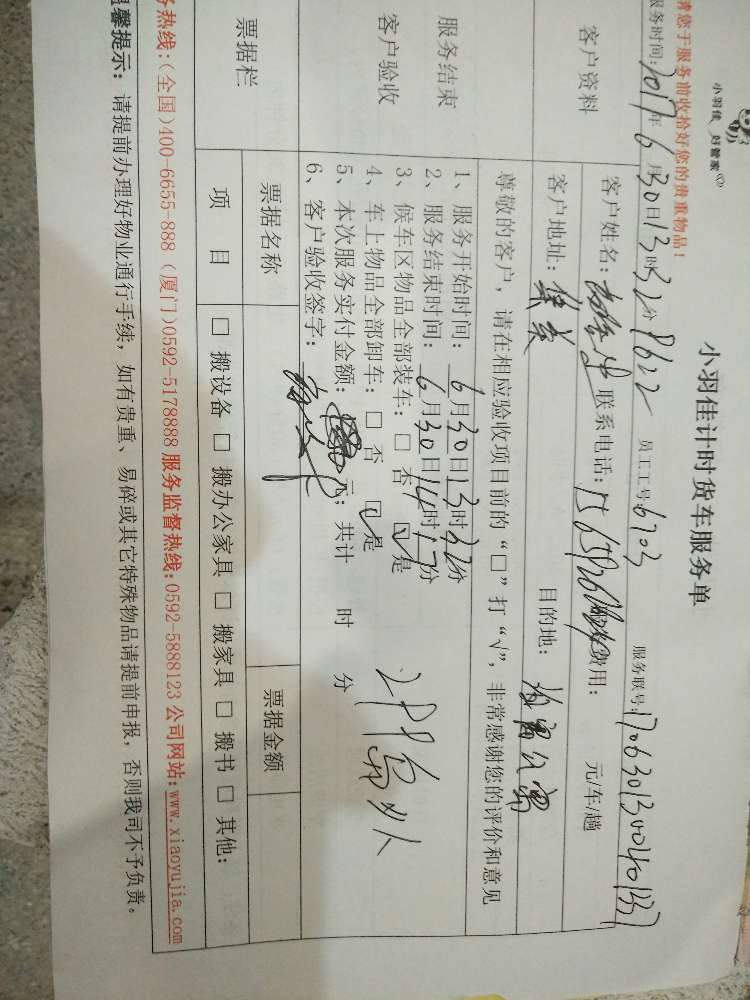 小羽佳 好管家
小羽佳计时货车服务单
请您于服务前收拾好您的贵重物品!
服务时间:2017年6月30日13时32分 8622 员工工号6703 服务联号:
客户资料
客户姓名: 联系电话: 费用: 元/车/趟
客户地址:集美 目的地:
服务结束
客户验收
尊敬的客户,请在相应验收项目前的“□”打“√”,非常感谢您的评价和意见
1、服务开始时间:6月30日13时32分
2、服务结束时间:6月30日14时17分
3、候车区物品全部装车:□ 否 ☑ 是
4、车上物品全部卸车:□ 否 ☑ 是
5、本次服务实付金额: 元;共计 时 分
6、客户验收签字:
票据栏
票据名称 票据金额
项 目 □ 搬设备 □ 搬办公家具 □ 搬家具 □ 搬书 □ 其他:
务热线:(全国)400-6655-888 (厦门)0592-5178888 服务监督热线:0592-5888123 公司网站:www.xiaoyujia.com
温馨提示:请提前办理好物业通行手续,如有贵重、易碎或其它特殊物品请提前申报,否则我司不予负责。